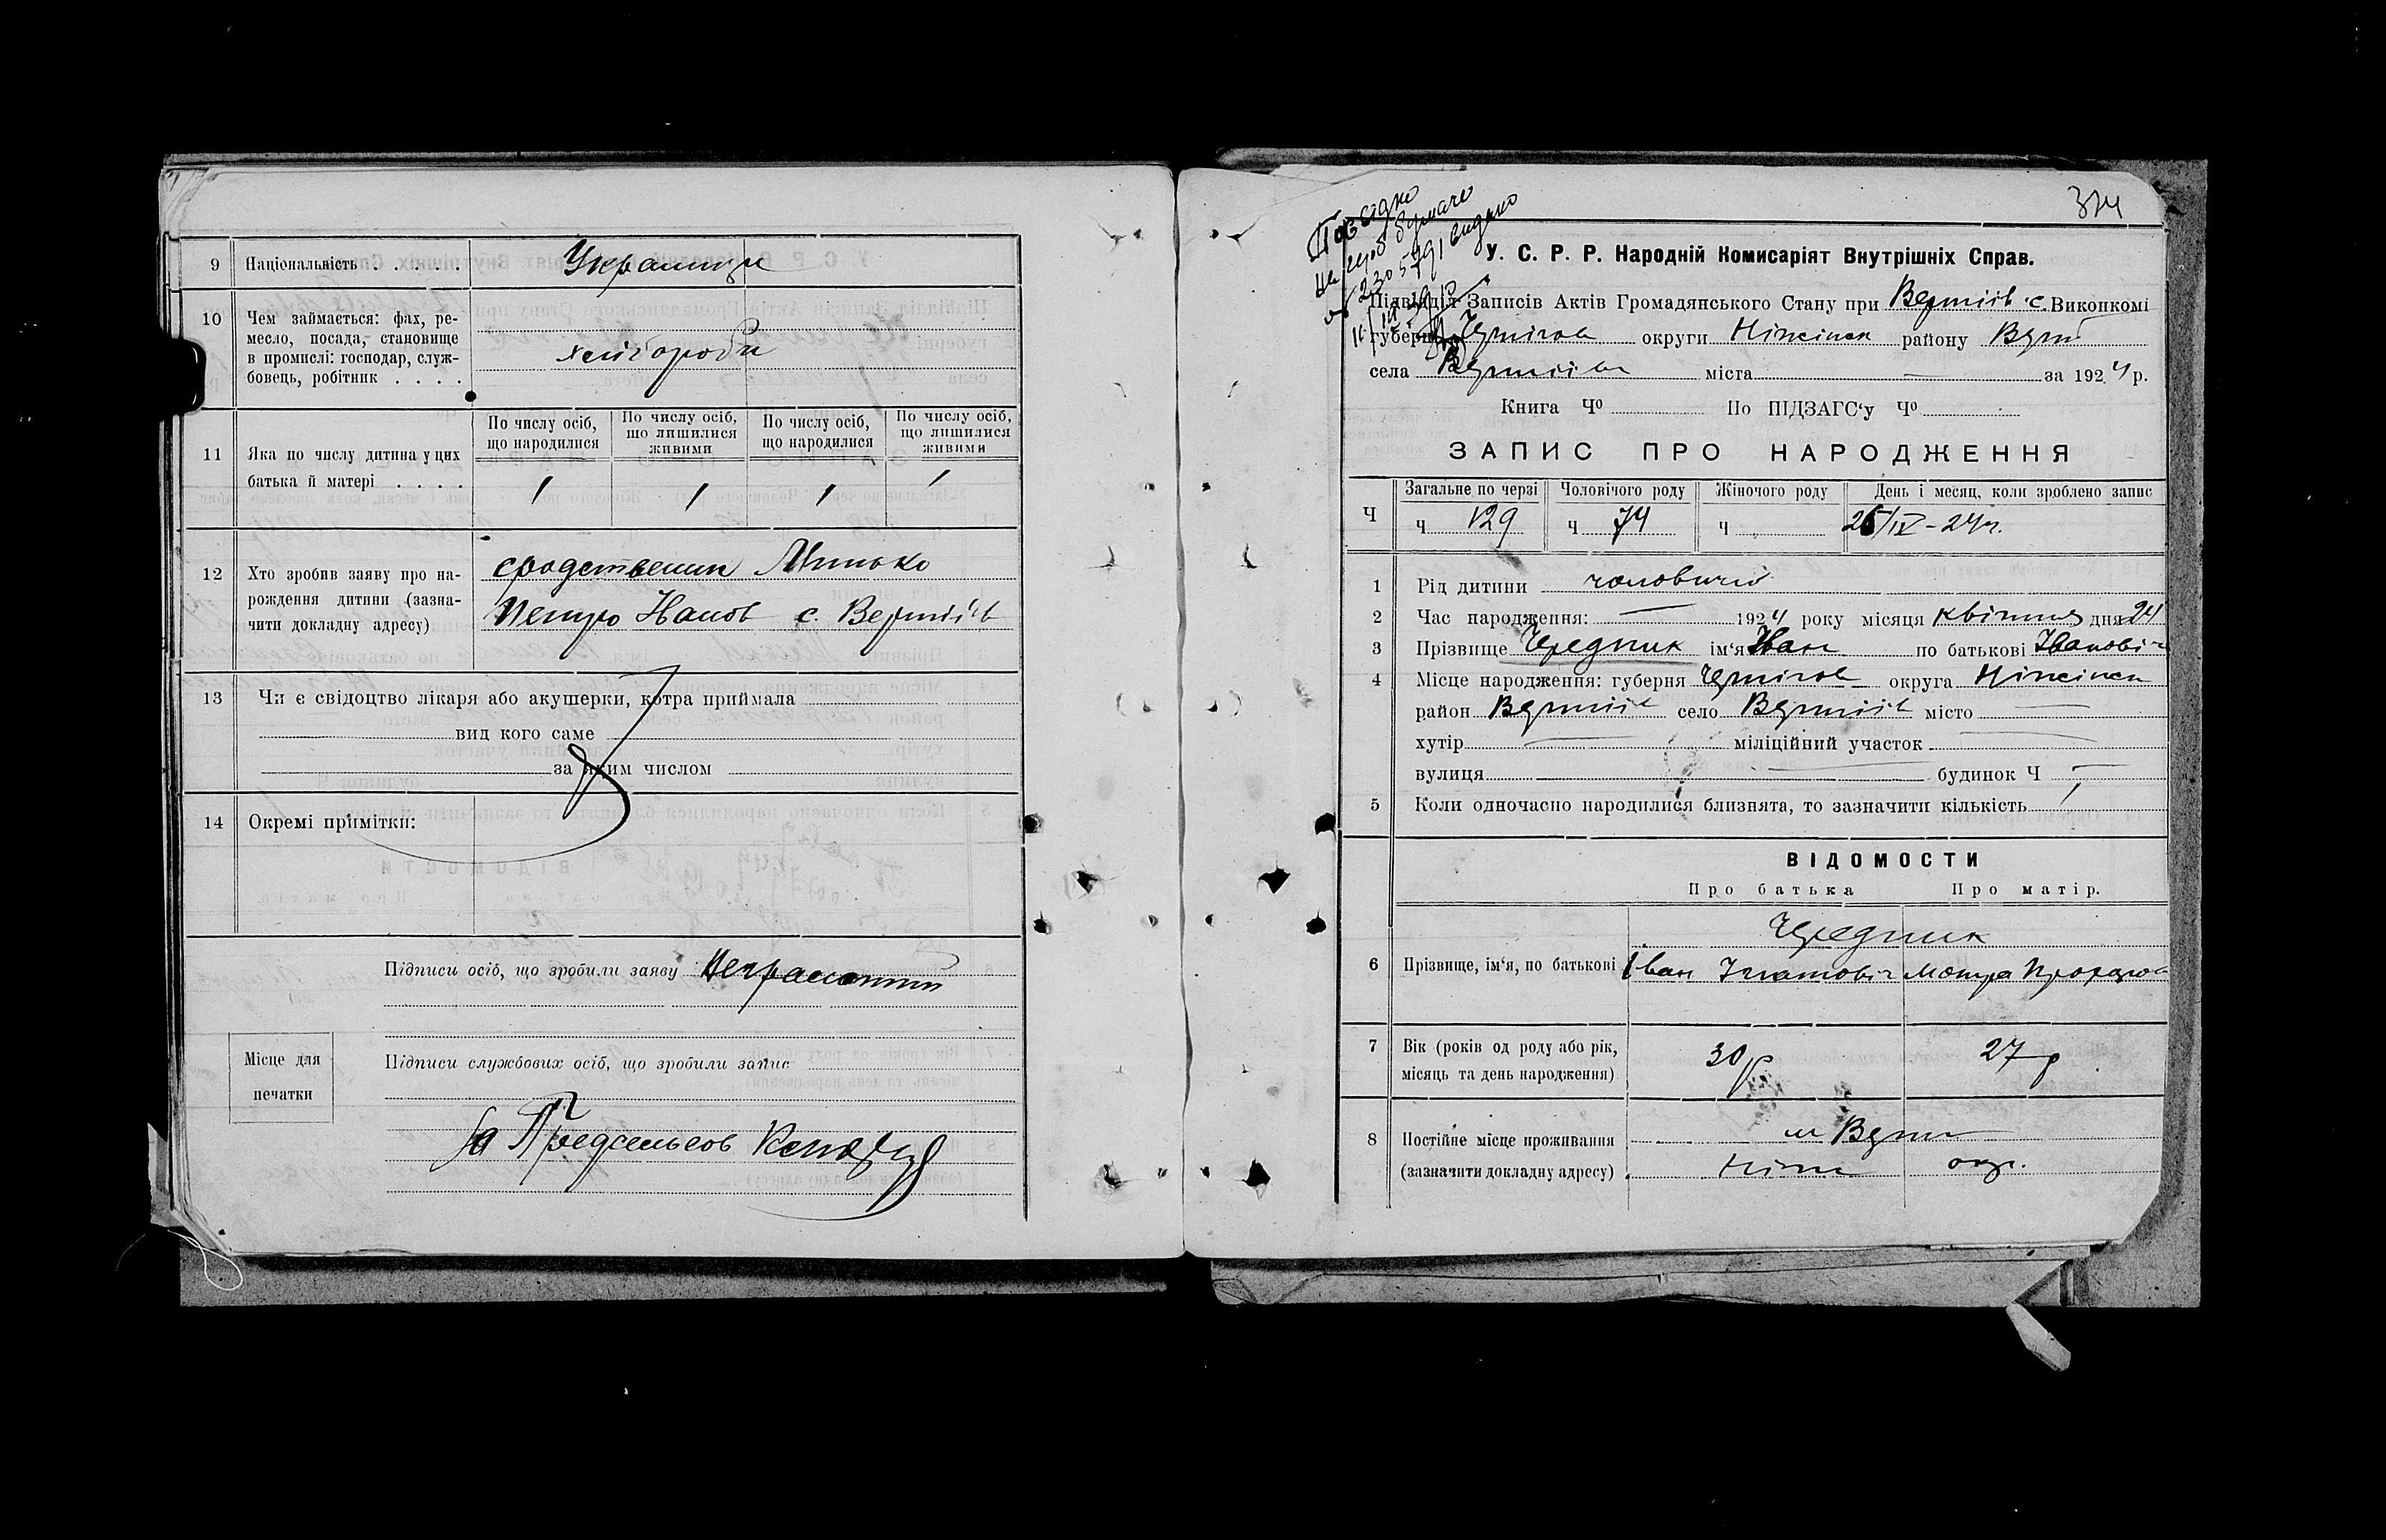 9 Національність . . . . Украинци
10 Чем займається: фах, ре-
месло, посада, становище
в промислі: господар, служ-
бовець, робітник . . . .
хлібороби
11 Яка по числу дитина у цих
батька й матері . . . .
По числу осіб, що народилися
По числу осіб, що лишилися живими
По числу осіб, що народилися
По числу осіб, що лишилися живими
1 1 1 1
12 Хто зробив заяву про на-
рождення дитини (зазна-
чити докладну адресу)
сродственик Минько
Петро Иванов с. Вертіїв
13 Чи є свідоцтво лікаря або акушерки, котра приймала
вид кого саме
за яким числом
14 Окремі примітки:
Підписи осіб, що зробили заяву Неграмотний
Місце для
печатки
Підписи службових осіб, що зробили запис
За Предсельсов
374
У. С. Р. Р. Народній Комисаріят Внутрішніх Справ.
Підвідділ Записів Актів Громадянського Стану при Вертіїв с. Виконкомі
губерні Чернігов округи Ніжінск району Верт
села Вертіїв міста — за 1924 р.
Книга Ч⁰ По ПІДЗАГС‘у Ч⁰
ЗАПИС ПРО НАРОДЖЕННЯ
Ч
Загальне по черзі Чоловічого роду Жіночого роду День і месяц, коли зроблено запис
ч 129 ч 74 ч 25/IV-24 г.
1 Рід дитини чоловичий
2 Час народження: — 1924 року місяця квітня дня 24
3 Прізвище Чередник ім‘я Иван по батькові Іванович
4 Місце народження: губерня Чернігов округа Ніжінск
район Вертіїв село Вертіїв місто —
хутір — міліційний участок —
вулиця — будинок Ч —
5 Коли одночасно народилися близнята, то зазначити кількість /
ВІДОМОСТИ
Про батька Про матір.
Чередник
6 Прізвище, ім‘я, по батькові Іван Игнатовіч Мотря Прохоров
7 Вік (років од роду або рік,
місяць та день народження)
30 р 27 р
8 Постійне місце проживання
(зазначити докладну адресу)
м Верт
Ніжн окр.